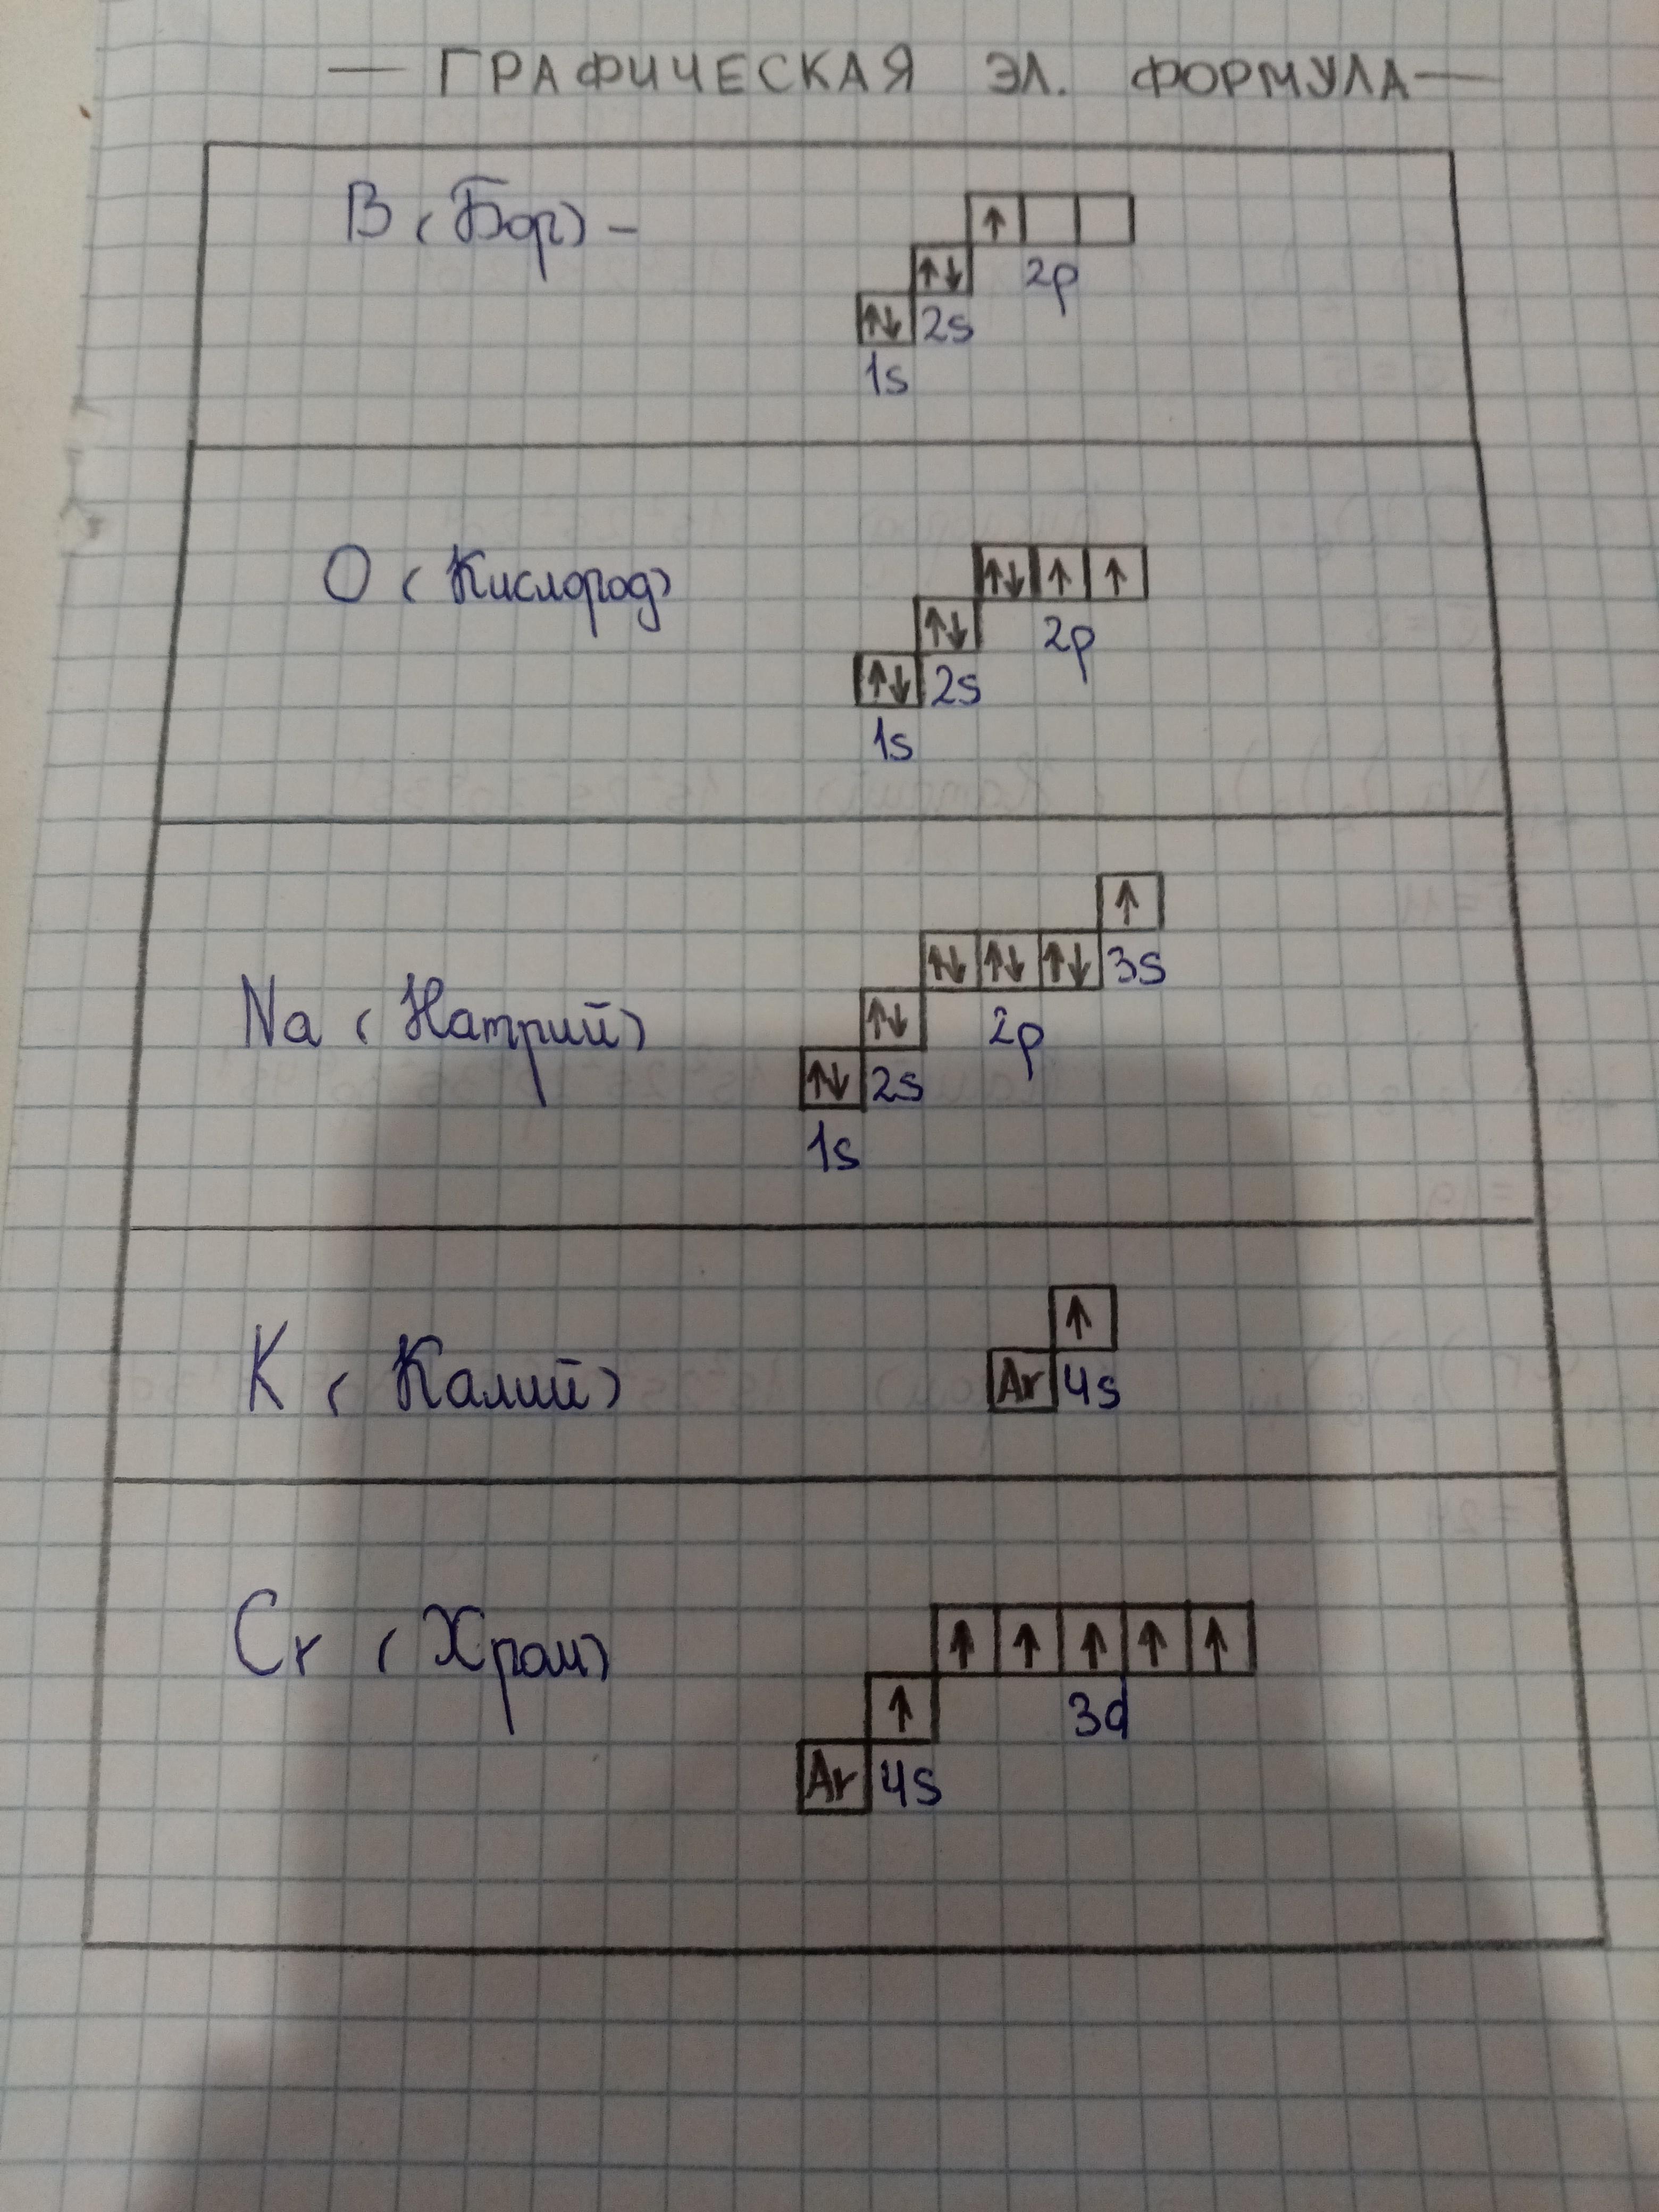 — ГРАФИЧЕСКАЯ ЭЛ. ФОРМУЛА —
B (Бор) -
↑
↑↓ 2p
↑↓ 2s
1s
O (Кислород)
↑↓ ↑ ↑
↑↓ 2p
↑↓ 2s
1s
↑
↑↓ ↑↓ ↑↓ 3s
Na (Натрий)
↑↓ 2p
↑↓ 2s
1s
↑
K (Калий)
Ar 4s
Cr (Хром)
↑ ↑ ↑ ↑ ↑
↑ 3d
Ar 4s